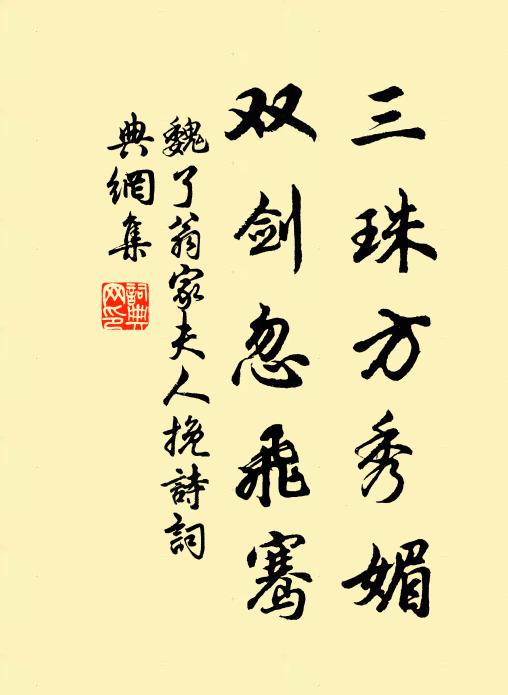 三珠方秀媚
双剑忽飞骞
魏了翁家夫人挽詩詞
典網集
詞典网印